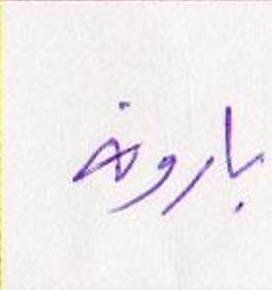 بارونه